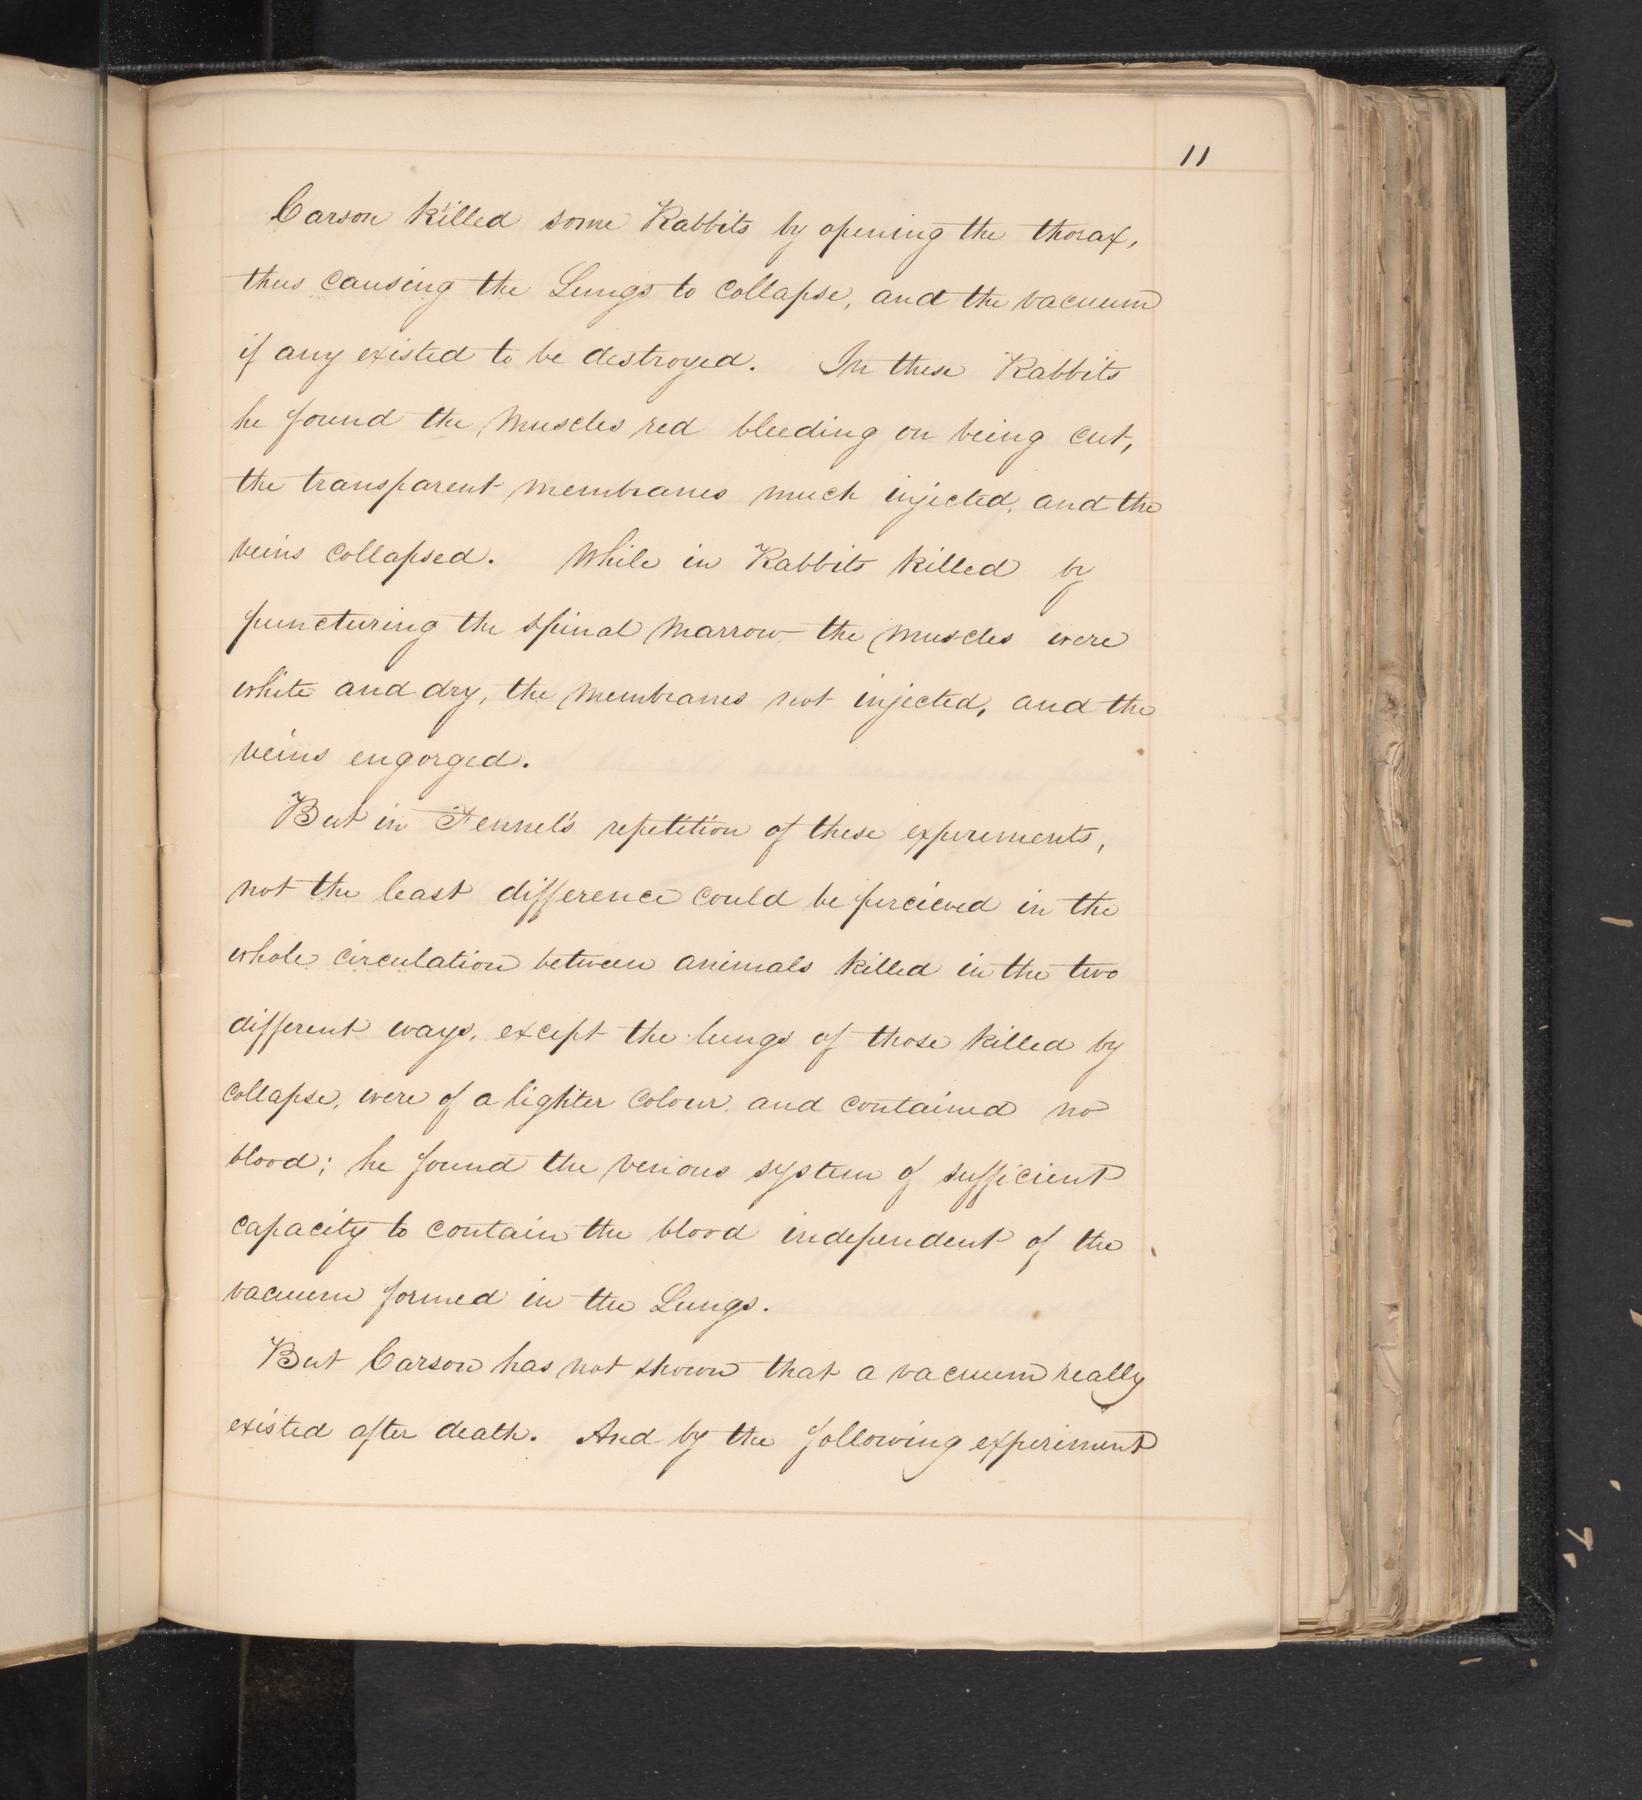 11
Carson killed some Rabbits by opening the thorax,
thus causing the Lungs to collapse, and the vacuum
if any existed to be destroyed. In these Rabbits
he found the muscles red bleeding on being cut,
the transparent membranes much injected, and the
veins collapsed. While in Rabbits killed by
puncturing the spinal marrow the muscles were
white and dry, the membranes not injected, and the
veins engorged.
But in Fennel's repetition of these experiments,
not the least difference could be percieved in the
whole circulation between animals killed in the two
different ways, except the lungs of those killed by
collapse, were of a lighter colour, and contained no
blood; he found the venous system of sufficient
capacity to contain the blood independent of the
vacuum formed in the Lungs.
But Carson has not shown that a vacuum really
existed after death. And by the following experiment